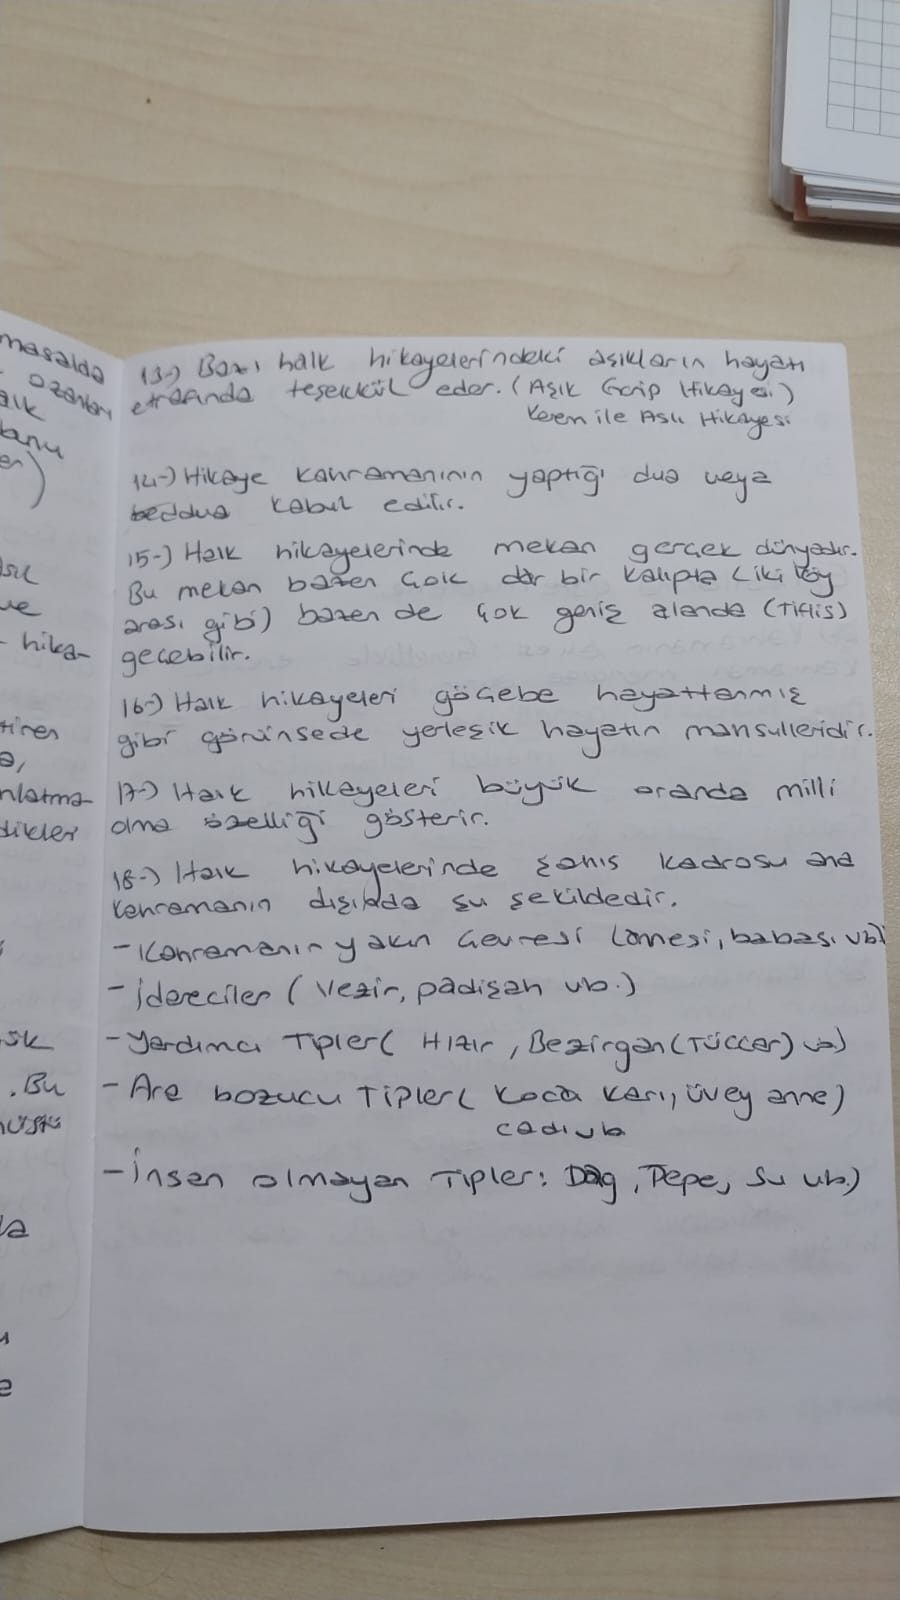 masalda
ozanları
alk
en)
ve
hika-
tiren
nlatma
dikler
. Bu
da
13-) Bazı halk hikayelerindeki aşıkların hayatı
etrafında teşekkül eder. (Aşık Garip Hikayesi)
Kerem ile Aslı Hikayesi
14-) Hikaye kahramanının yaptığı dua veya
beddua kabul edilir.
15-) Halk hikayelerinde mekan gerçek dünyadır.
Bu mekan bazen çok dar bir kalıpta (iki köy
arası gibi) bazen de çok geniş alanda (Tiflis)
geçebilir.
16-) Halk hikayeleri göçebe hayattanmış
gibi görünsede yerleşik hayatın mahsulleridir.
17-) Halk hikayeleri büyük oranda milli
olma özelliği gösterir.
18-) Halk hikayelerinde şahıs kadrosu ana
kahramanın dışında şu şekildedir.
- Kahramanın yakın çevresi (annesi, babası vb)
- İdareciler (Vezir, padişah vb.)
- Yardımcı Tipler ( Hızır, Bezirgan (Tüccar) vb)
- Ara bozucu Tipler ( Koca Karı, üvey anne)
cadı vb
- İnsan olmayan Tipler: Dağ, Tepe, Su vb.)